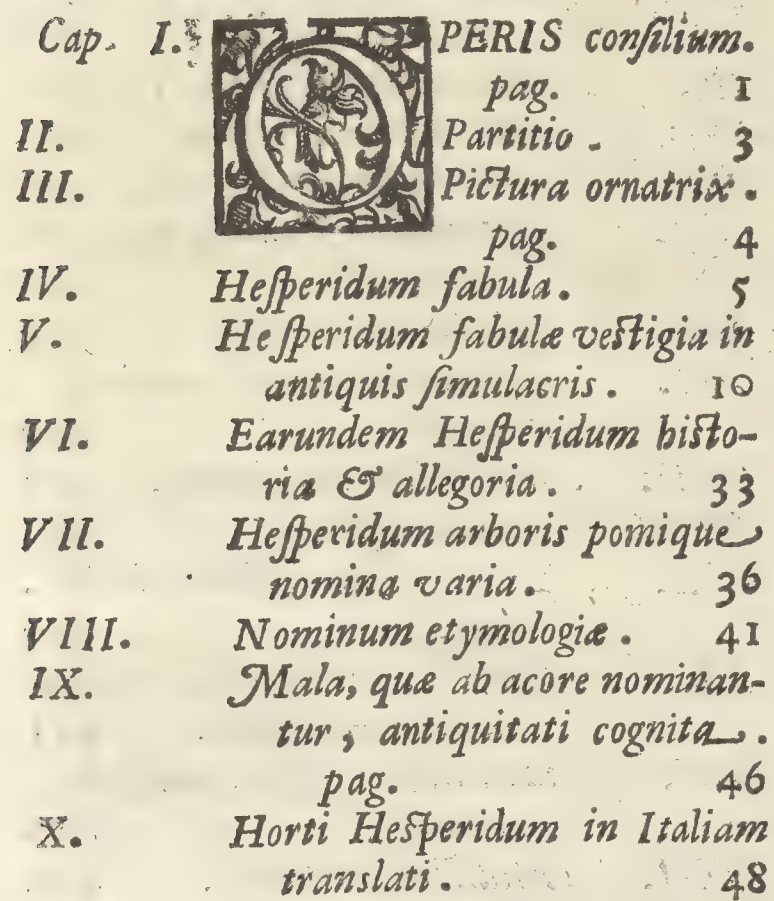 Cap. I. OPERIS conſilium.
pag. 1
II. Partitio. 3
III. Pictura ornatrix.
pag. 4
IV. Heſperidum fabula. 5
V. Heſperidum fabulæ veſtigia in
antiquis ſimulacris. 10
VI. Earundem Heſperidum hiſto-
ria & allegoria. 33
VII. Heſperidum arboris pomique
nomina varia. 36
VIII. Nominum etymologiæ. 41
IX. Mala, quæ ab acore nominan-
tur, antiquitati cognita.
pag. 46
X. Horti Heſperidum in Italiam
translati. 48